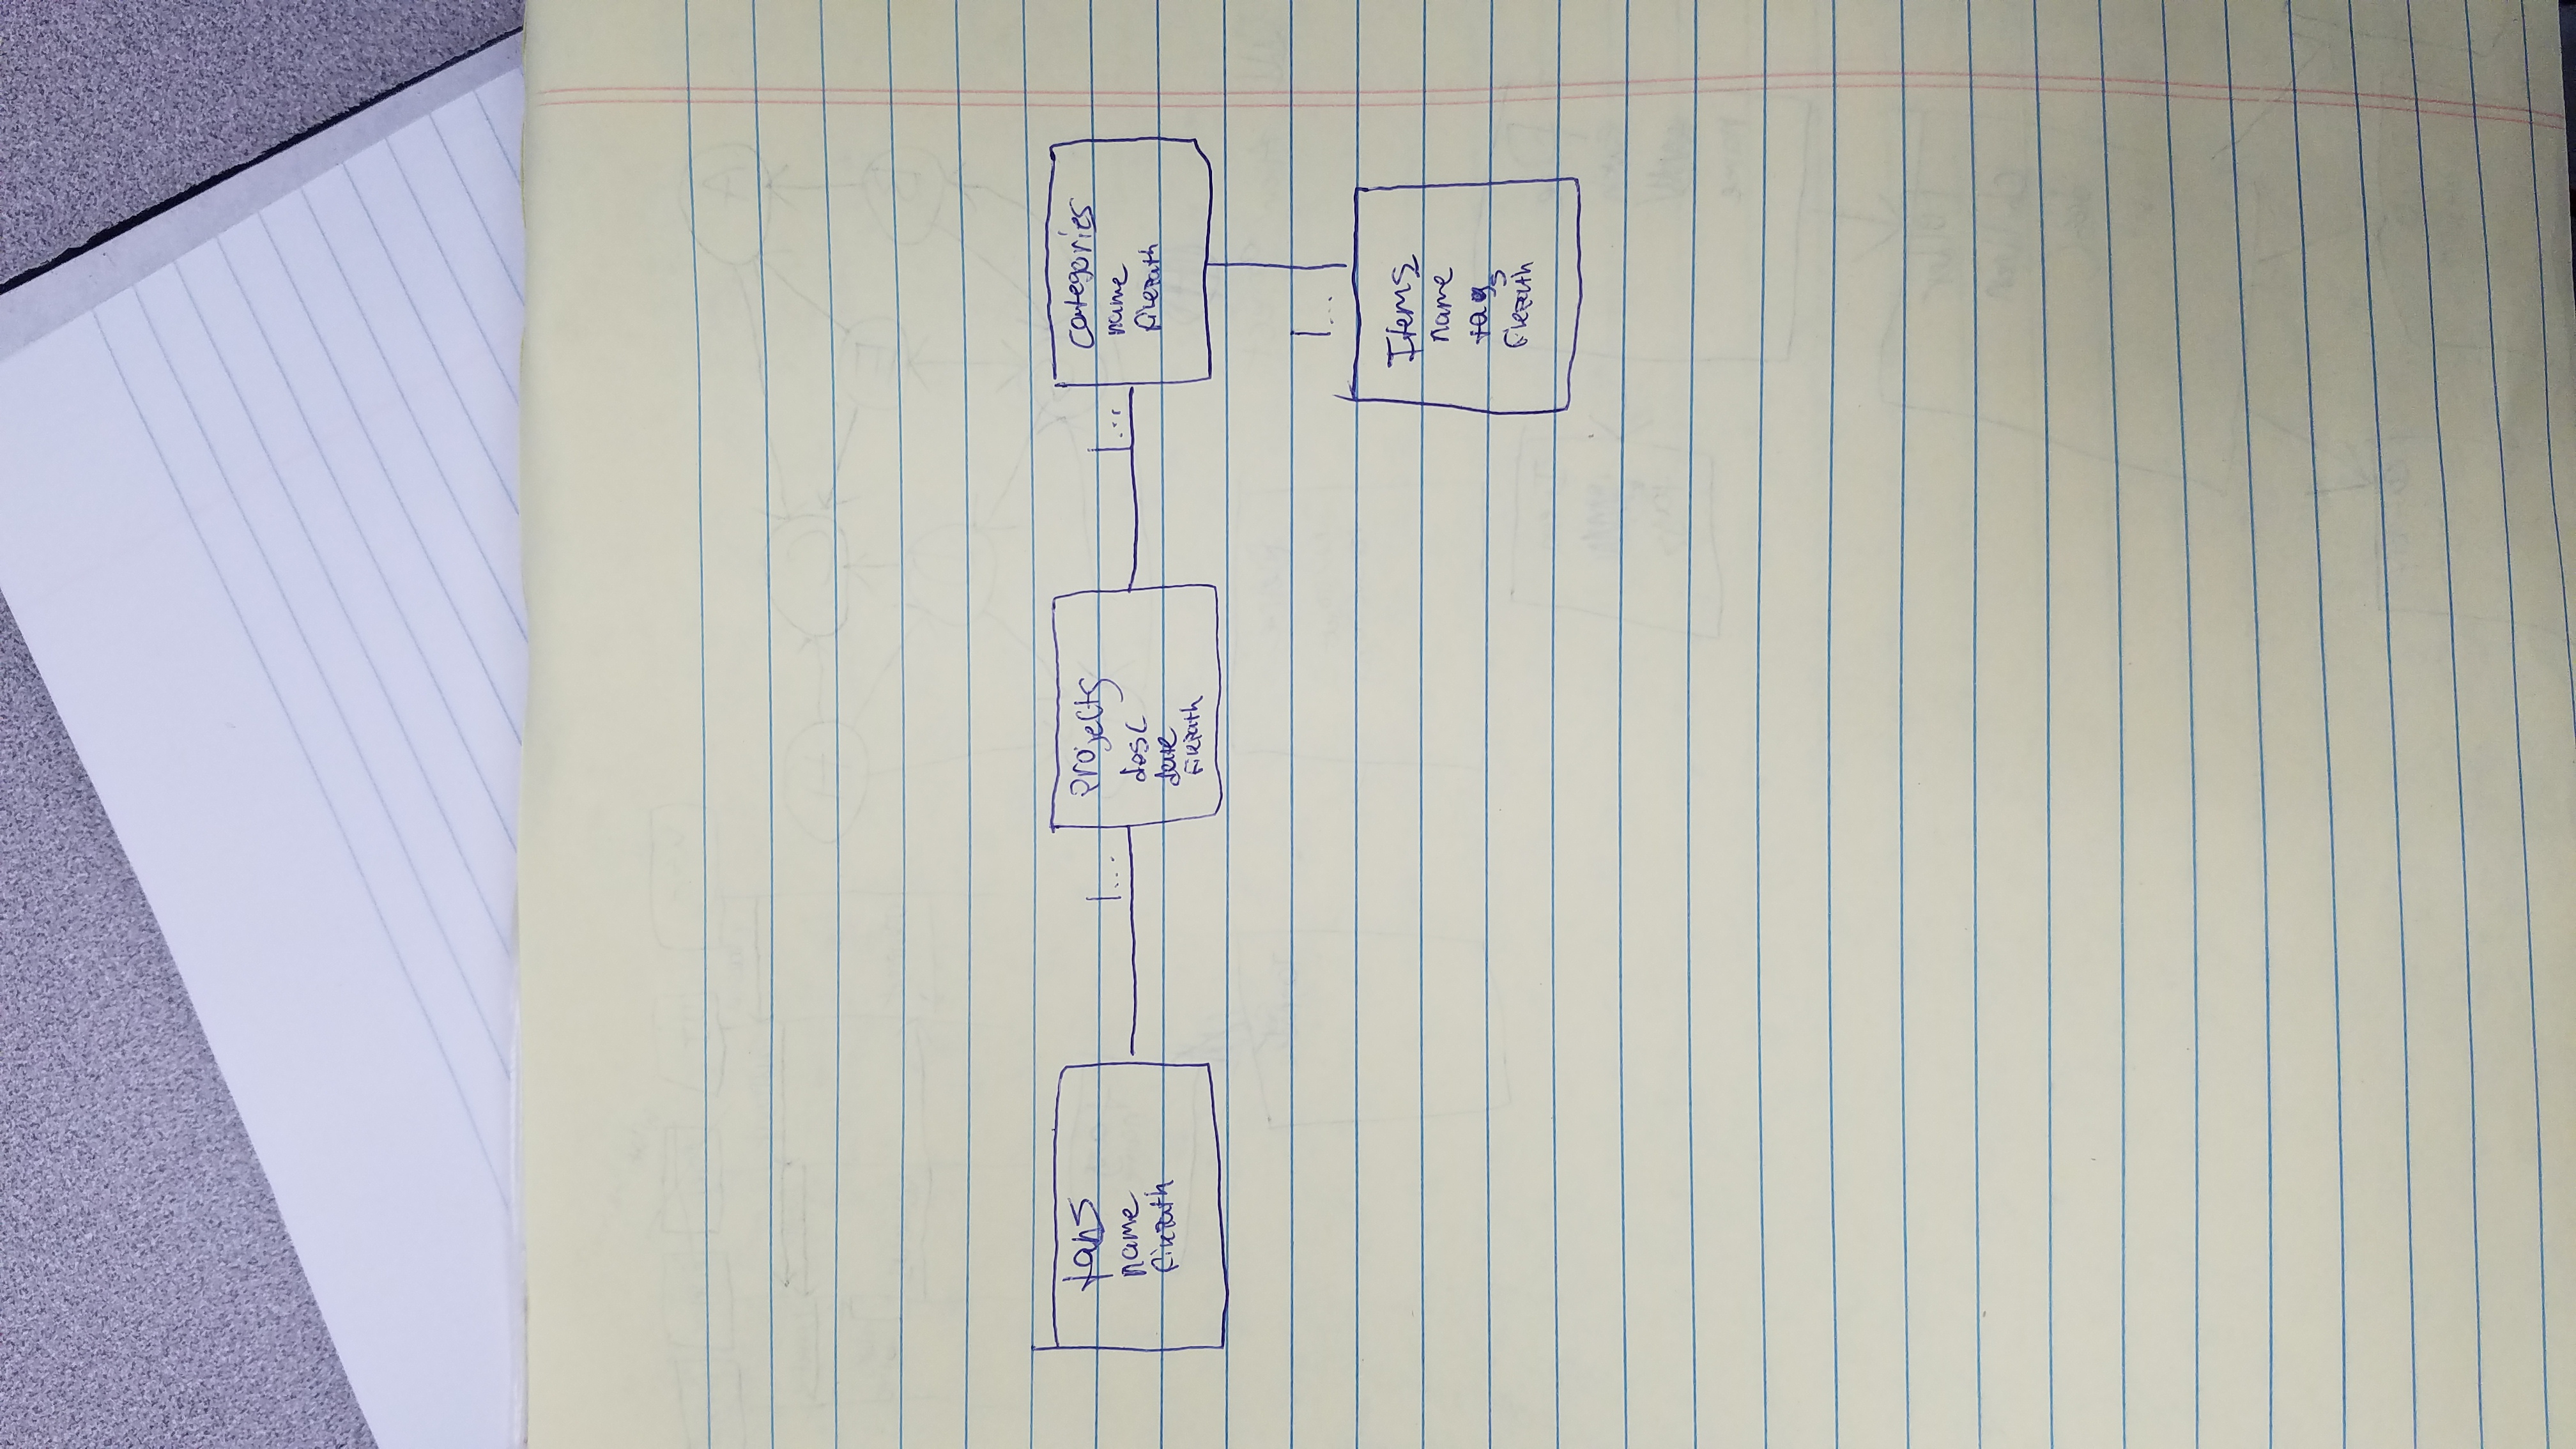 tabs
name
filepath
1...
Projects
desc
date
filepath
1...
categories
name
filepath
1...
Items
name
tags
filepath